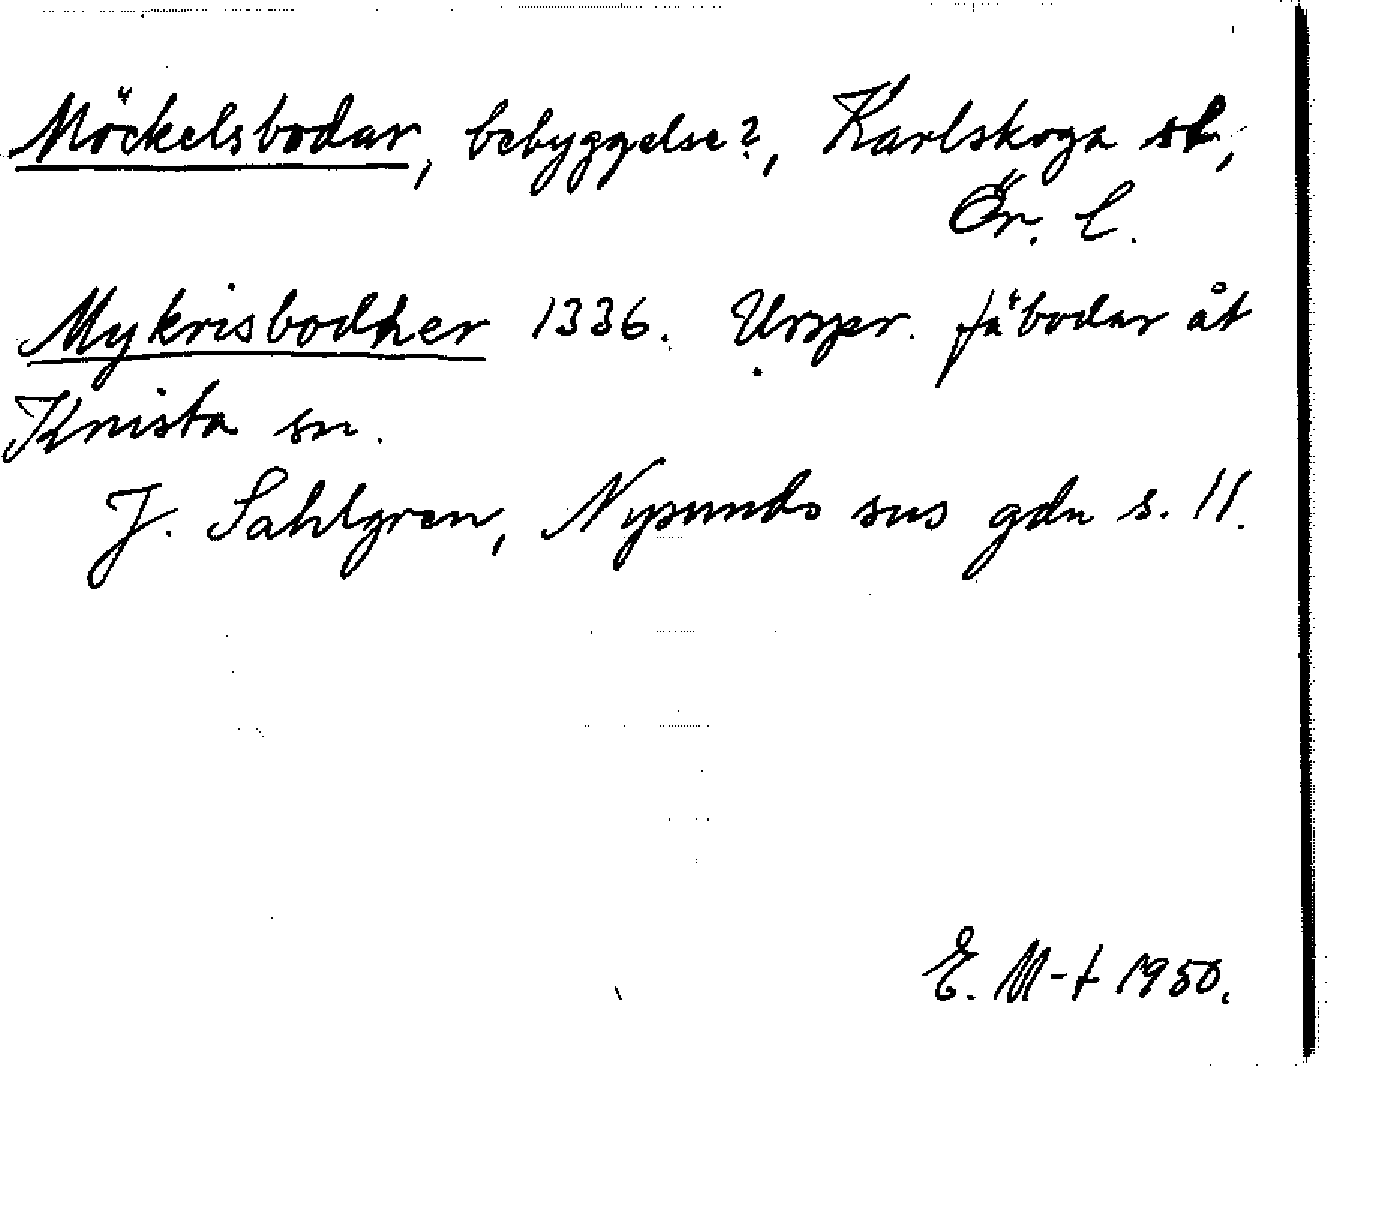 Möckelsbodar, bebyggelse?, Karlskoga sk,
Ör. l.
Mykrisbodher 1336. Urspr. fäbodar åt
Knista sn.
J. Sahlgren, Nysunds sns gdn s. 11.
E. M-t 1950.